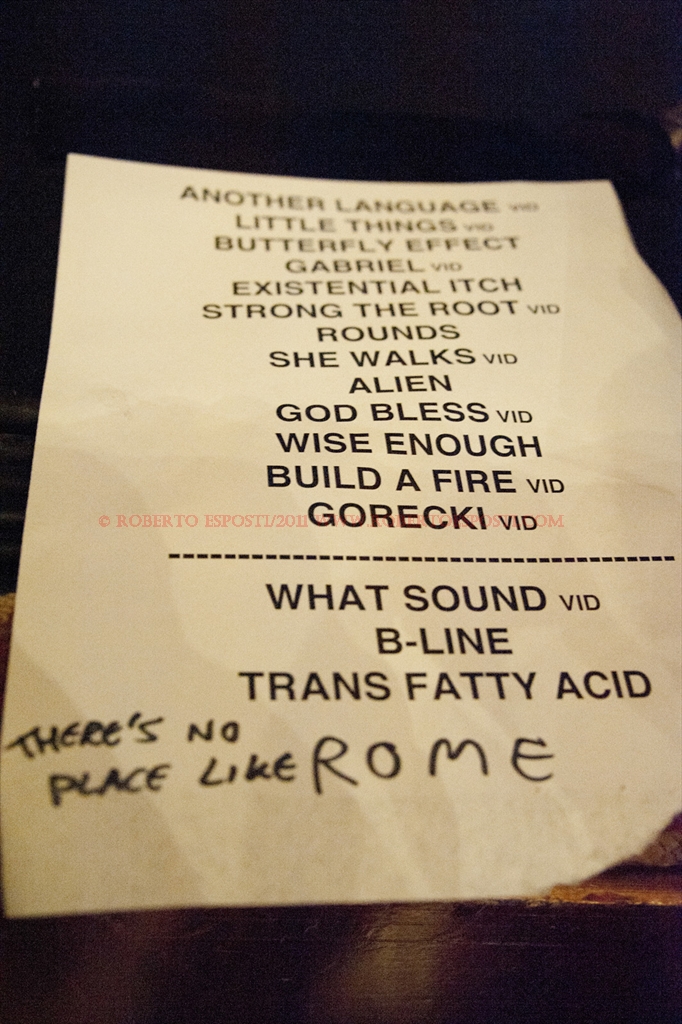 ANOTHER LANGUAGE VID
LITTLE THINGS VID
BUTTERFLY EFFECT
GABRIEL VID
EXISTENTIAL ITCH
STRONG THE ROOT VID
ROUNDS
SHE WALKS VID
ALIEN
GOD BLESS VID
WISE ENOUGH
BUILD A FIRE VID
GORECKI VID
© ROBERTO ESPOSTI/2011 WWW.ROBERTOESPOSTI.COM
WHAT SOUND VID
B-LINE
TRANS FATTY ACID
THERE'S NO
PLACE LIKE ROME